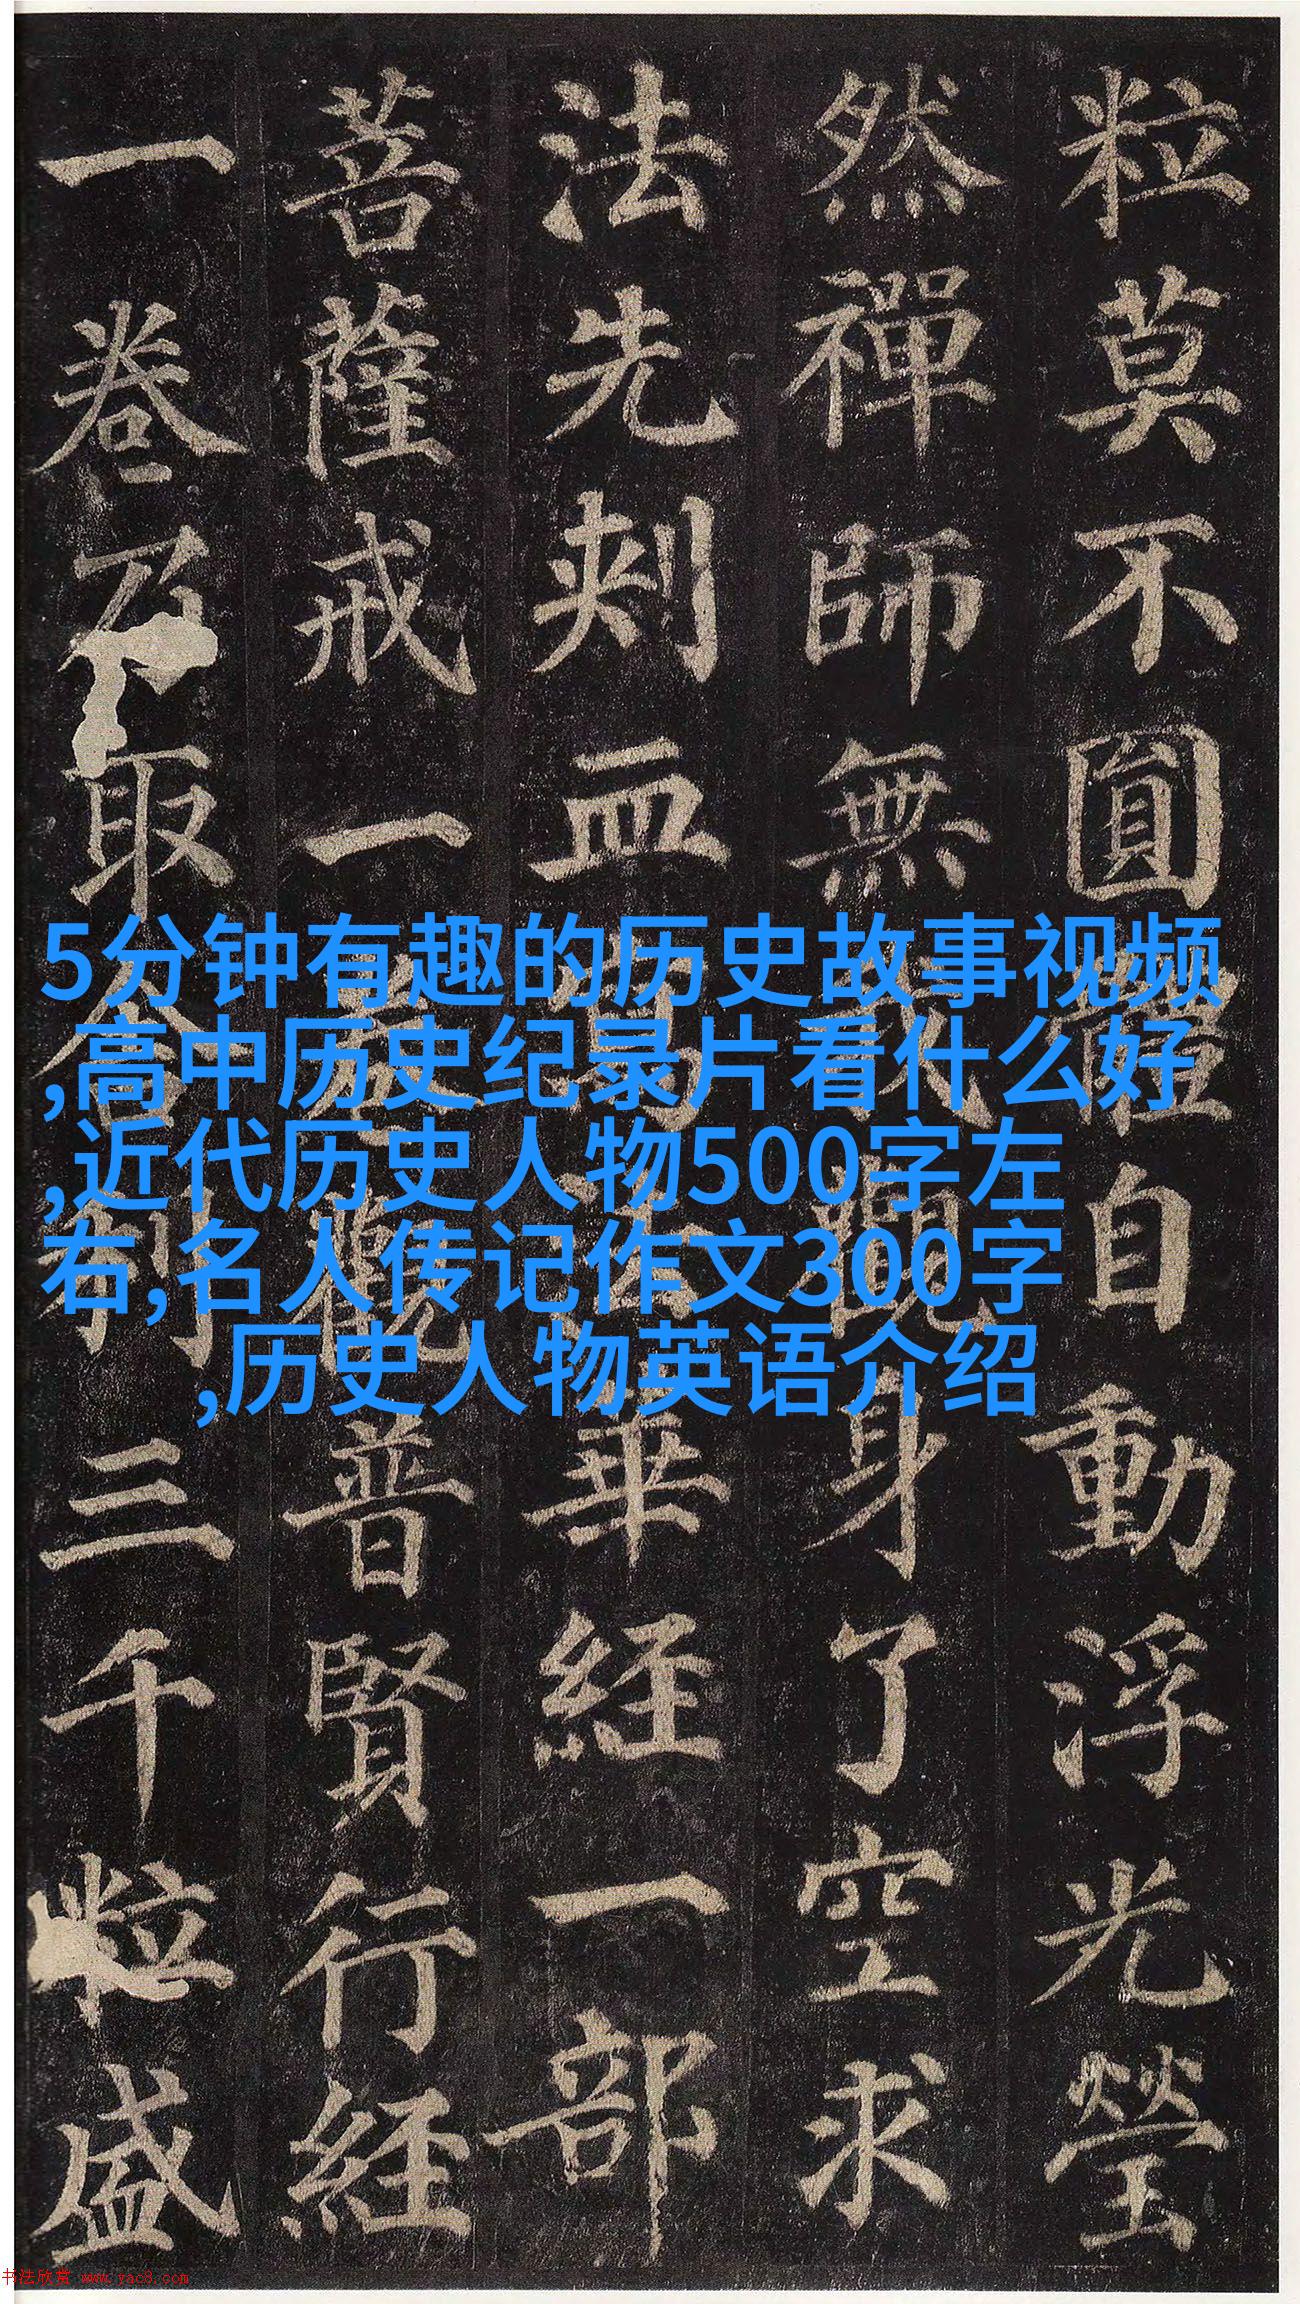 粒莫不圓體自動浮光瑩
然禪師無我觀身了空求
法先刺血寫法華経一部
菩薩戒一卷觀普賢行経
一卷乃取舍利三千粒盛
5分钟有趣的历史故事视频
,高中历史纪录片看什么好
,近代历史人物500字左
右,名人传记作文300字
,历史人物英语介绍
书法欣赏 www.yac8.com